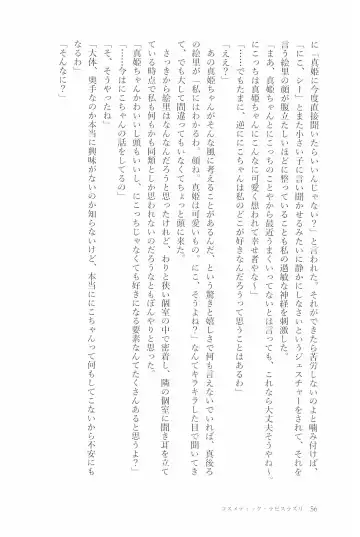 に「真姫に今度直接聞いたらいいんじゃない?」と言われた。それができたら苦労しないのよと噛み付けば、
「にこ、シー」とまた小さい子に言い聞かせるみたいに静かにしなさいというジェスチャーをされて、それを
言う絵里の顔が腹立たしいほどに整っていることも私の過敏な神経を刺激した。
「まあ、真姫ちゃんとにこっちのことやから最近うまくいってないとは言っても、これなら大丈夫そうやね〜。
にこっちは真姫ちゃんにこんなに可愛く想われて幸せ者やな〜」
「……でもたまに、逆ににこちゃんは私のどこが好きなんだろうって思うことはあるわ」
「ええ?」
あの真姫ちゃんがそんな風に考えることがあるんだ、という驚きと嬉しさで何も言えないでいれば、真後ろ
の絵里が「私にはわかるわね。顔ね。真姫は可愛いもの。にこ、そうよね?」なんてキラキラした目で聞いてき
て、でも大して間違ってもいなくてちょっと頭に来た。
さっきから絵里はなんなんだろうと思ったけれど、わりと狭い個室の中で密着し、隣の個室に聞き耳を立て
ている時点で私も何もかも同類としか思われないのだろうなともぼんやりと思った。
「真姫ちゃんかわいいし頭もいいし、にこっちじゃなくても好きになる要素なんてたくさんあると思うよ?」
「……今はにこちゃんの話をしてるの」
「そ、そうやったね」
「大体、奥手なのか本当に興味がないのか知らないけど、本当ににこちゃんって何もしてこないから不安にも
なるわ」
「そんなに?」
コスメティック・ラピスラズリ 56